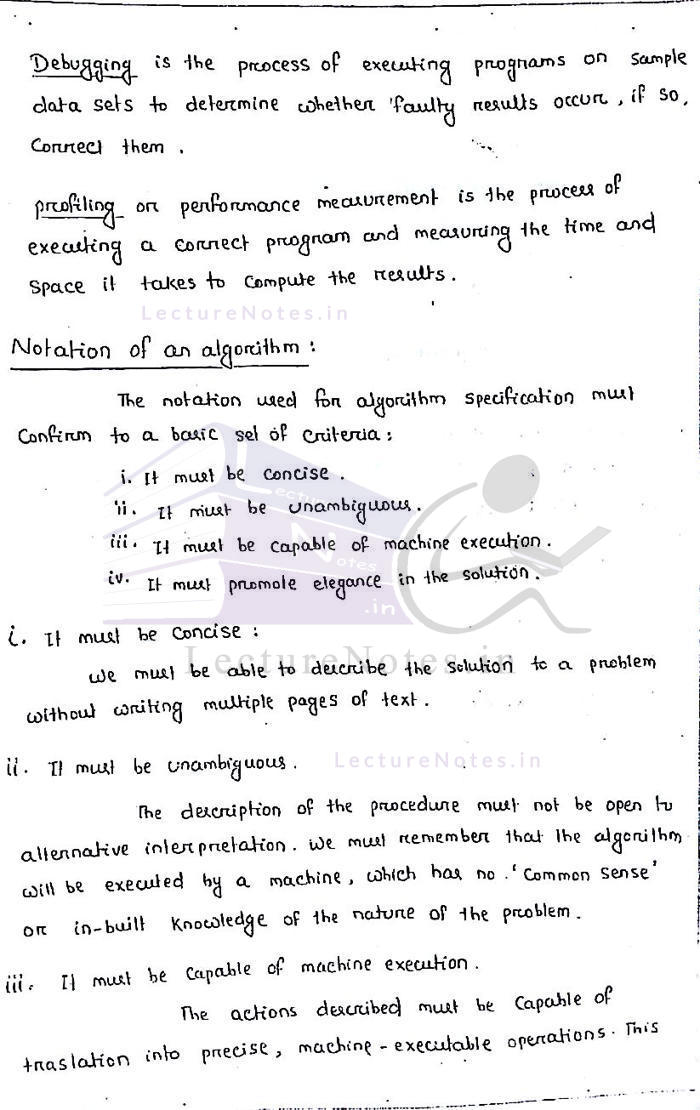 Debugging is the process of executing programs on sample
data sets to determine whether faulty results occur, if so,
Correct them.
profiling or performance measurement is the process of
executing a correct program and measuring the time and
space it takes to compute the results.
LectureNotes.in
Notation of an algorithm :
The notation used for algorithm specification must
Confirm to a basic set of criteria :
i. It must be concise.
ii. It must be unambiguous.
iii. It must be capable of machine execution.
iv. It must promote elegance in the solution.
Lecture
Notes
.in
i. It must be Concise :
we must be able to describe the solution to a problem
LectureNotes.in
without writing multiple pages of text.
ii. It must be unambiguous.
LectureNotes.in
The description of the procedure must not be open to
alternative interpretation. We must remember that the algorithm
will be executed by a machine, which has no 'Common sense'
or in-built Knowledge of the nature of the problem.
iii. It must be Capable of machine execution.
The actions described must be Capable of
traslation into precise, machine-executable operations. This